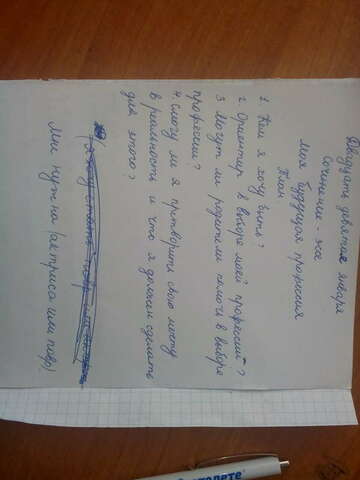 Двадцать девятое января
Сочинение - эссе
Моя будущая профессия
План
1. Кем я хочу быть?
2. Ориентир в выборе моей профессий?
3 Могут ли родители помочь в выборе
профессии?
4. Смогу ли я притворить свою мечту
в реальность и что я должен сделать
для этого?
Мне нужна (актриса или повр)